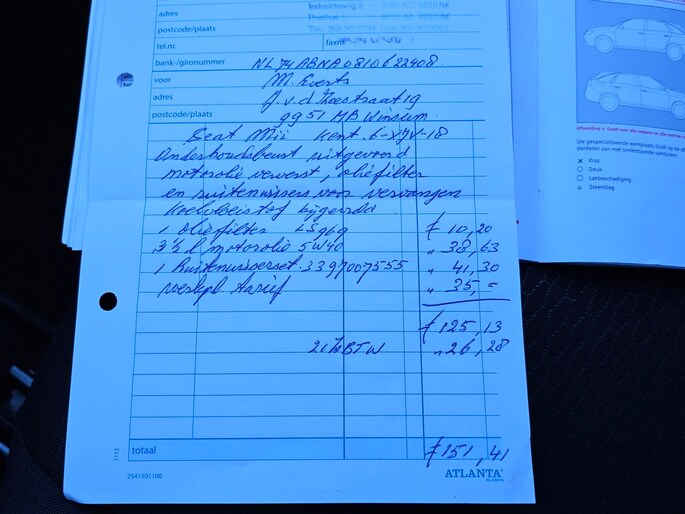 Industrieweg 8
adres
postcode/plaats
tel.nr. faxnr.
bank-/gironummer NL74ABNA0810622408
voor M. Everts
adres J. v. d. Zeestraat 19
postcode/plaats 9951 HB Winsum
Seat Mii Kent. 6-XJV-18
Onderhoudsbeurt uitgevoerd
motorolie ververst, oliefilter
en ruitenwissers voor vervangen
koelvloeistof bijgevuld
1 oliefilter LS969 € 10,20
3½ l motorolie 5W40 „ 38,63
1 Ruitenwisserset 3397007555 „ 41,30
werkpl. tarief „ 35,=
€ 125,13
21% BTW „ 26,28
totaal € 151,41
1113
2541501100
ATLANTA
Afbeelding is
Uw gespecialiseerde werkplaats
dardelen aan met onderstaande symbolen:
x Kras
Deuk
Lakbeschadiging
Steenslag